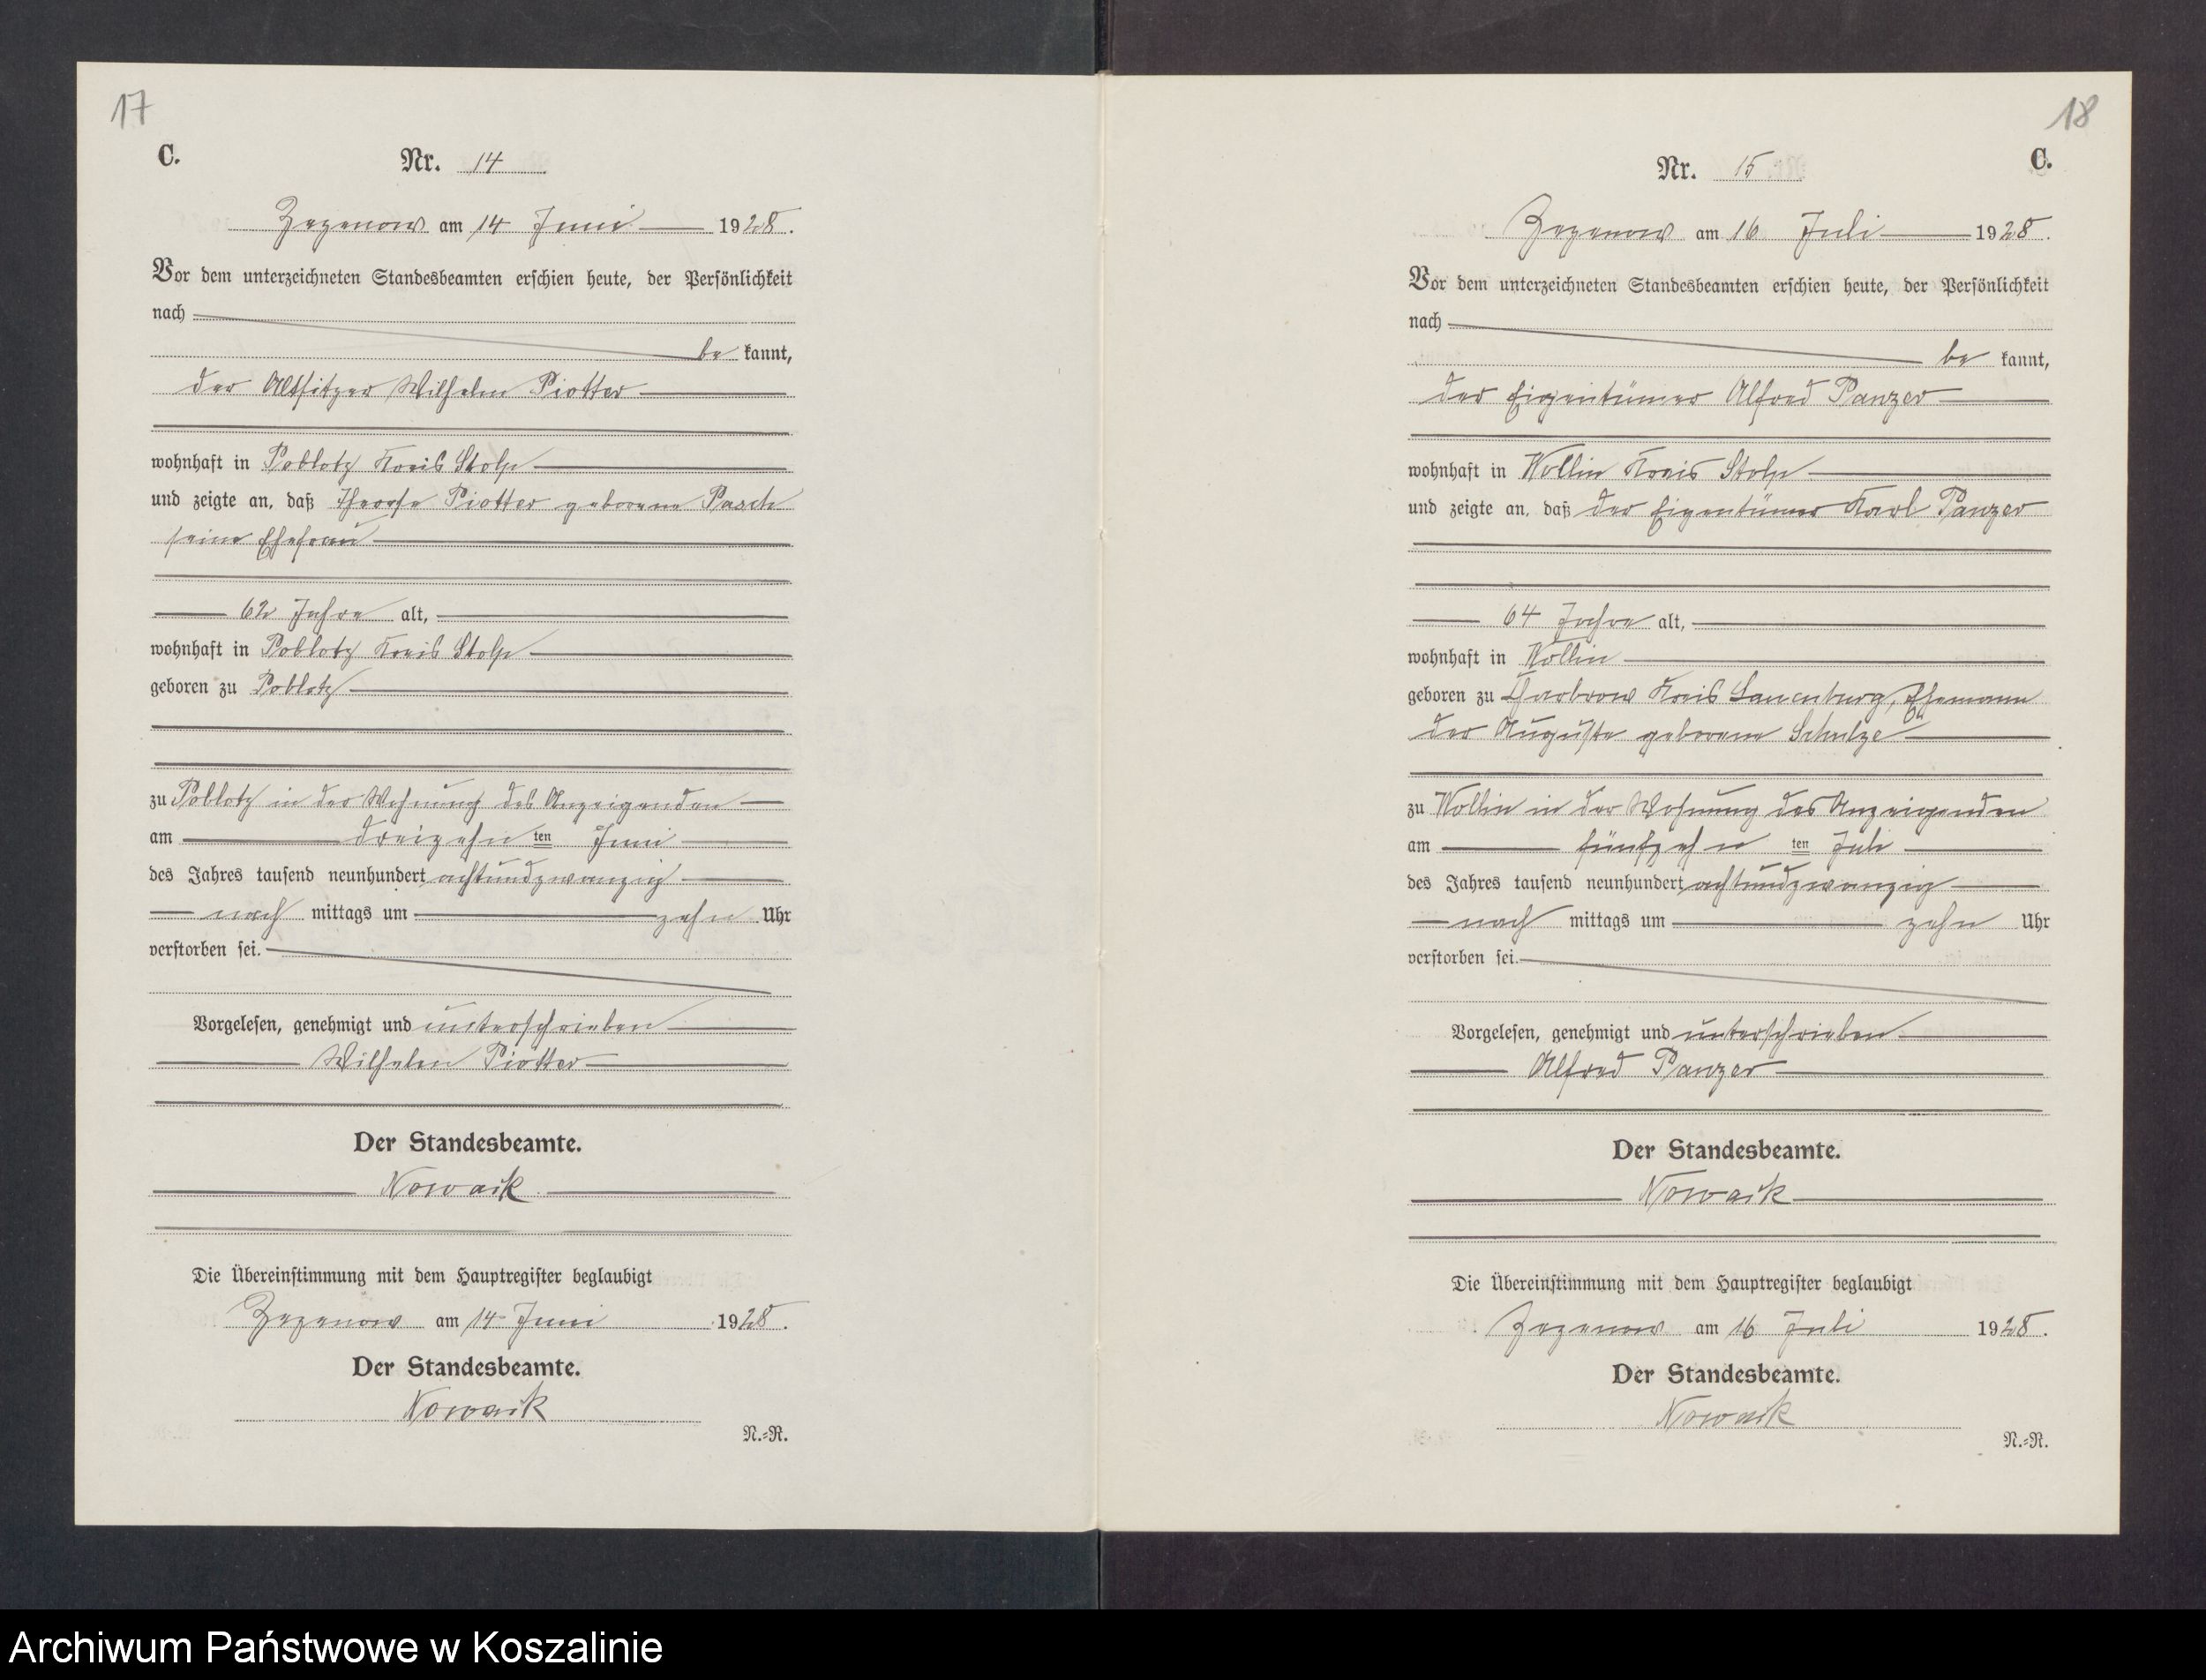 17
C.
Nr. 14
Zezenow am 14 Juni 1928.
Vor dem unterzeichneten Standesbeamten erschien heute, der Persönlichkeit
nach
be kannt,
der Altsitzer Wilhelm Piotter
wohnhaft in Poblotz Kreis Stolp
und zeigte an, daß Piotter geborene Pasch
seine Ehefrau
62 Jahre alt,
wohnhaft in Poblotz Kreis Stolp
geboren zu Poblotz
zu Poblotz in der Wohnung des Anzeigenden
am dreizehn ten Juni
des Jahres tausend neunhundert achtundzwanzig
nach mittags um zehn Uhr
verstorben sei.
Vorgelesen, genehmigt und unterschrieben
Wilhelm Piotter
Der Standesbeamte.
Nowack
Die Übereinstimmung mit dem Hauptregister beglaubigt
Zezenow am 14 Juni 1928.
Der Standesbeamte.
Nowack
N.=R.
18
C.
Nr. 15
Zezenow am 16 Juli 1928.
Vor dem unterzeichneten Standesbeamten erschien heute, der Persönlichkeit
nach
be kannt,
der Eigentümer Alfred Panzer
wohnhaft in Wollin Kreis Stolp
und zeigte an, daß der Eigentümer Karl Panzer
64 Jahre alt,
wohnhaft in Wollin
geboren zu Charbrow Kreis Lauenburg, Ehemann
der Auguste geborene Schulze
zu Wollin in der Wohnung des Anzeigenden
am fünfzehn ten Juli
des Jahres tausend neunhundert achtundzwanzig
nach mittags um zehn Uhr
verstorben sei.
Vorgelesen, genehmigt und unterschrieben
Alfred Panzer
Der Standesbeamte.
Nowack
Die Übereinstimmung mit dem Hauptregister beglaubigt
Zezenow am 16 Juli 1928.
Der Standesbeamte.
Nowack
N.=R.
Archiwum Państwowe w Koszalinie